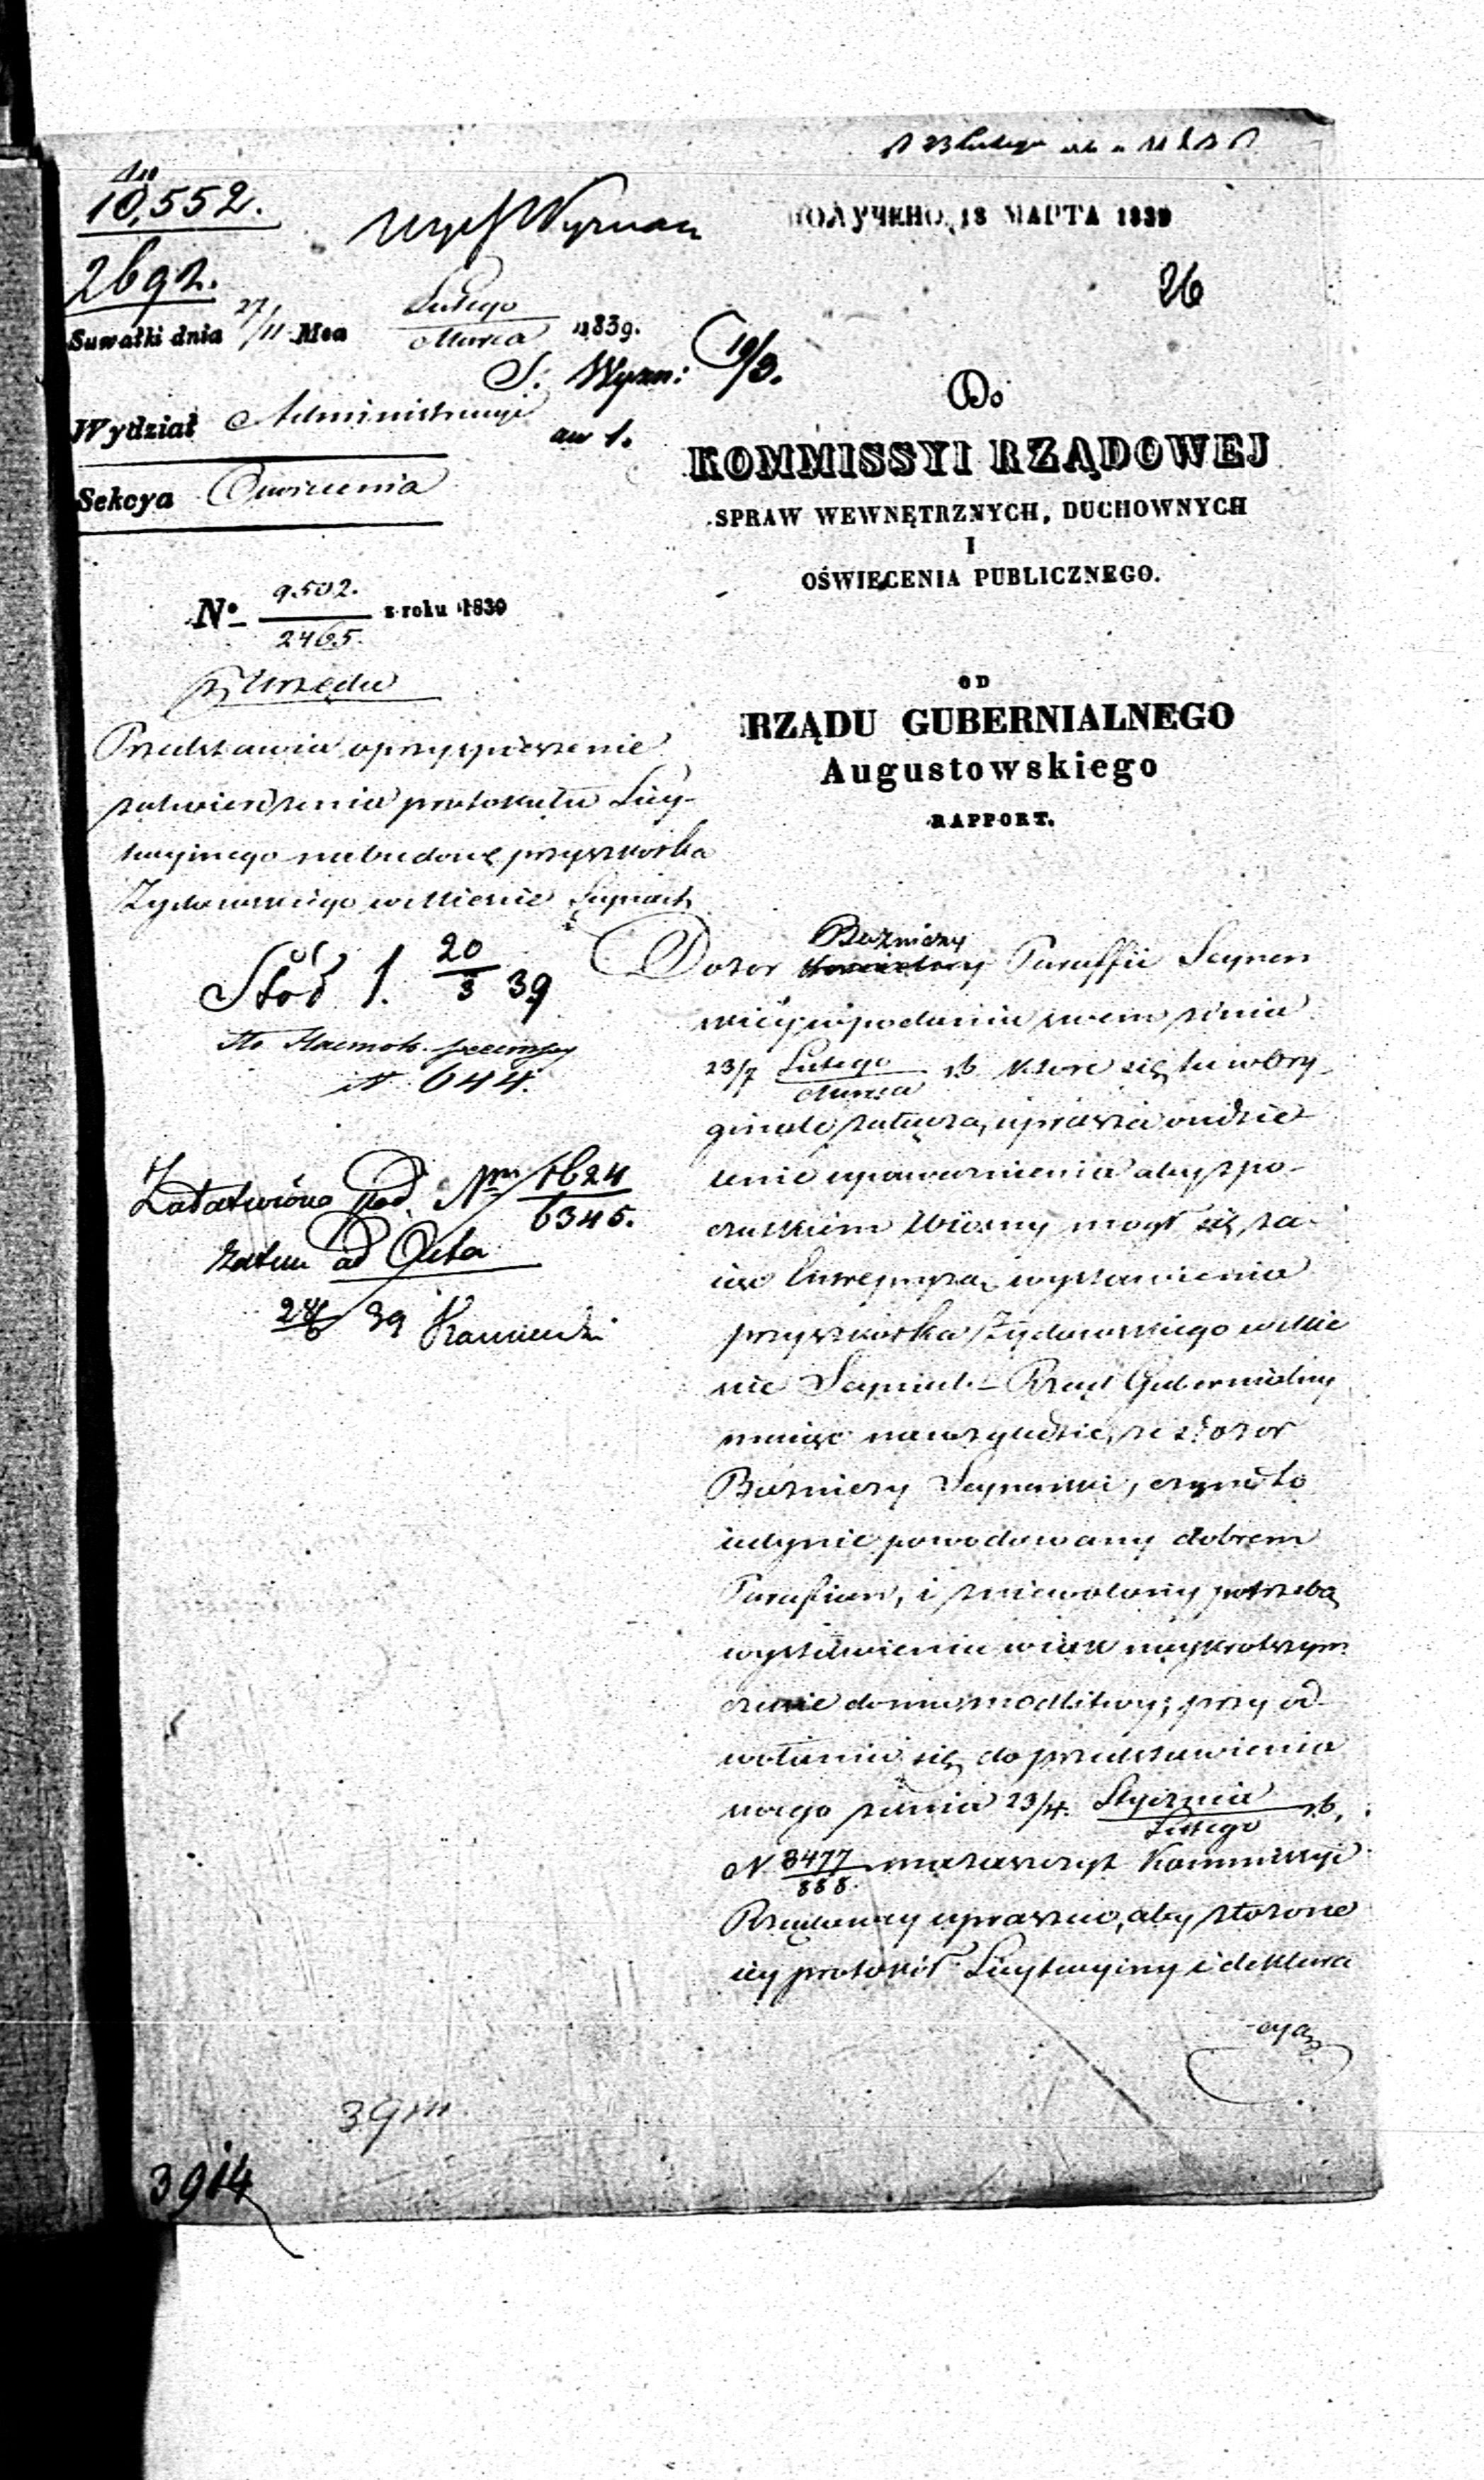 10,552.
2692.
ПОЛУЧЕНО, 18 МАРТА 1839
26
Suwałki dnia 27/11 Mca Lutego/Marca 1839.
S: Wyzn: 19/3.
Wydział Administracyi
Sekcya Oswiecenia
Do
KOMMISSYI RZĄDOWEJ
SPRAW WEWNĘTRZNYCH, DUCHOWNYCH
I
OŚWIECENIA PUBLICZNEGO.
No 9502./2465. z roku 1839
z Urzędu
OD
RZĄDU GUBERNIALNEGO
Augustowskiego
RAPPORT.
Przedstawia o przyspieszenie
zatwierdzenia protokułu Licy-
tacyinego na budowę przyszkolka
Żydowskiego w Mieście Seynach
20/3 39
N 644.
Załatwiono pod Nrm 1624/6345.
zatem ad Acta
39
Dozor Bożniczy Paraffii Seynen
skiey w podaniu swem z dnia
23/7 Lutego/Marca r.b. ktore się tu w Ory-
ginale załącza, uprasza o udzie-
lenie upoważnienia aby z po-
czątkiem Wiosny mogł się za-
iąć Entrepryzą wystawienia
przyszkolka Żydowskiego w Mie
ście Seynach. Rząd Gubernialny
maiąc na względzie, że Dozor
Bożniczy Seynenski, czyni to
iedynie powodowany dobrem
Parafian, i zniewolony potrzebą
wystawienia w iak naykrotszym
czasie domu modlitwy; przy od-
wołaniu się do przedstawienia
swego z dnia 23/4. Stycznia/Lutego r.b.
N 3477/888. ma zaszczyt Kommissyi
Rządowey upraszać, aby złożone
iey protokół Licytacyiny i deklara
-cyą
39
3914